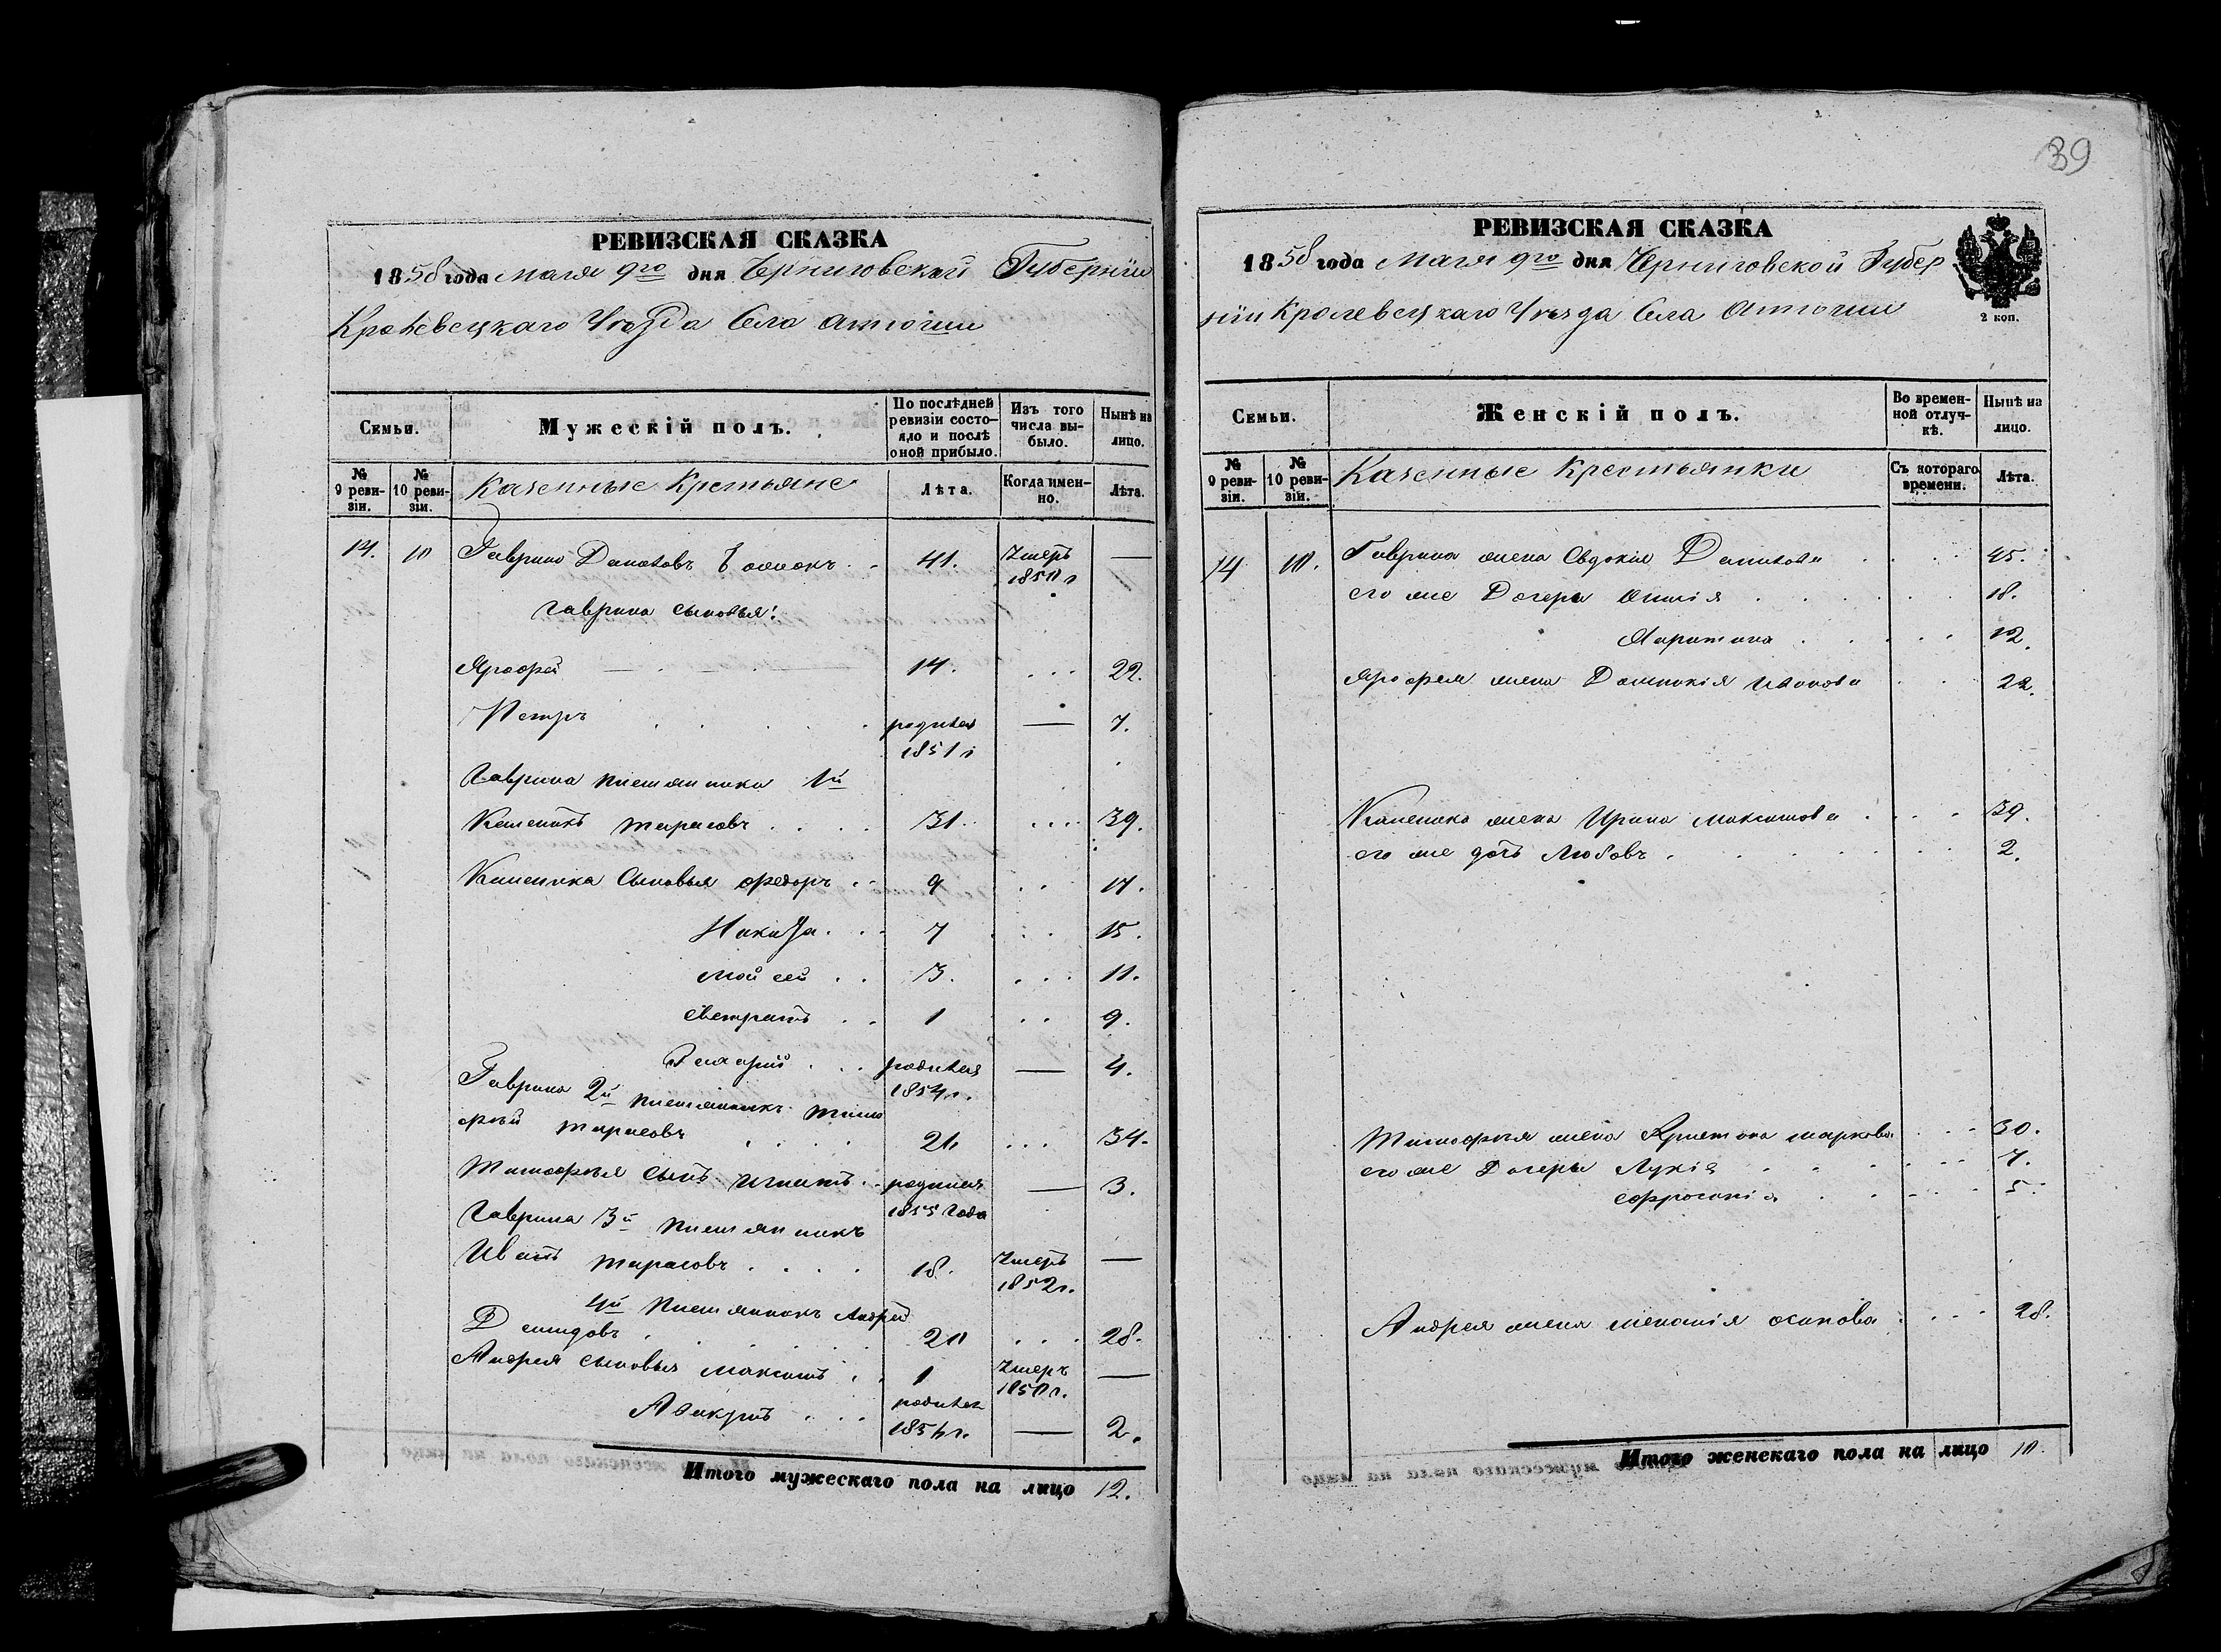 РЕВИЗСКАЯ СКАЗКА
1858 года Маія 9го дня Черниговской Губерніи
Кролевецкаго Уезда Села Атюши
Семьи.
Мужескій полъ.
По послѣдней ревизіи состояло и послѣ оной прибыло.
Изъ того числа выбыло.
Нынѣ на лицо.
№ 9 ревизіи.
№ 10 ревизіи.
Казенные Крестьяне
Лѣта.
Когда именно.
Лѣта.
14. 10 Гаврило Данилов 41. Умеръ 1850 г —
Гаврила сыновья:
Ярофей 14. 22.
Петръ родился 1851 г — 7.
Гаврила племянники 1й
Климентъ Тарасовъ 31. 39.
Климента Сыновья Федоръ 9 17.
Никита 7 15.
Мойсей 3. 11.
Евстратъ 1 9.
родился 1854 г. — 4.
Гаврила 2й племянникъ Тимо
фей Тарасовъ 26 34.
Тимофея сынъ Игнатъ родился 1855 года — 3.
Гаврила 3й племянникъ
Иванъ Тарасовъ 18. Умеръ 1852 г. —
4й племянникъ Андрей
Демидовъ 20 28.
Андрея сыновья Максимъ 1 Умеръ 1850 г. —
родился 1856 г. — 2.
Итого мужескаго пола на лицо 12.
39
РЕВИЗСКАЯ СКАЗКА
1858 года Маія 9го дня Черниговской Губер
ніи Кролевецкаго Уезда Села Атюши
2 коп.
Семьи.
Женскій полъ.
Во временной отлучкѣ.
Нынѣ на лицо.
№ 9 ревизіи.
№ 10 ревизіи.
Казенные Крестьянки
Съ котораго времени.
Лѣта.
14 10. Гаврила жена Евдокія Данилова 45.
его же Дочери 18.
Харитина 12.
Ярофея жена Домникія Иванова 22.
Климента жена Ирина Максимова 39.
его же дочь Любовъ 2.
Тимофея жена Христина Маркова 30.
его же Дочери Лукія 7.
Ефросинія 5.
Андрея жена Меланія Осипова 28.
Итого женскаго пола на лицо 10.